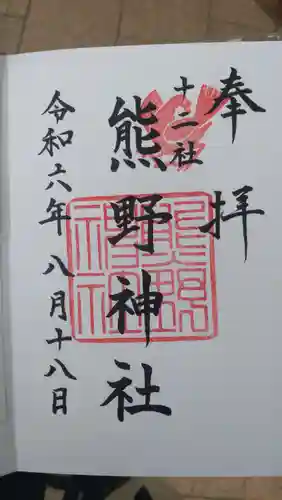 奉拝
十二社
熊野神社
令和六年八月十八日
熊野神社